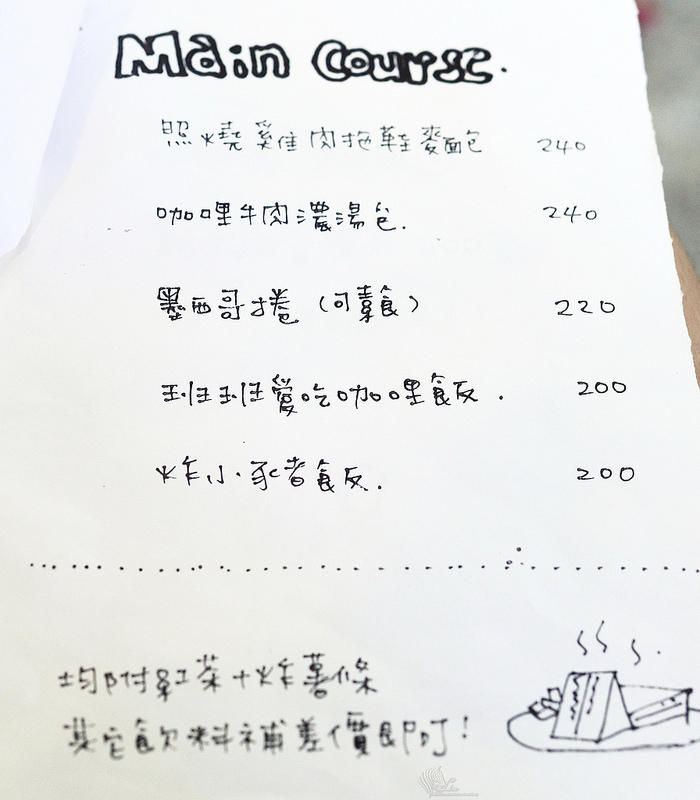 Main Course.
照燒雞肉拖鞋麥麵包 240
咖哩牛肉濃湯包. 240
墨西哥捲(可素食) 220
班班愛吃咖哩飯. 200
炸小豬飯. 200
均附紅茶+炸薯條
其它飲料補差價即可!